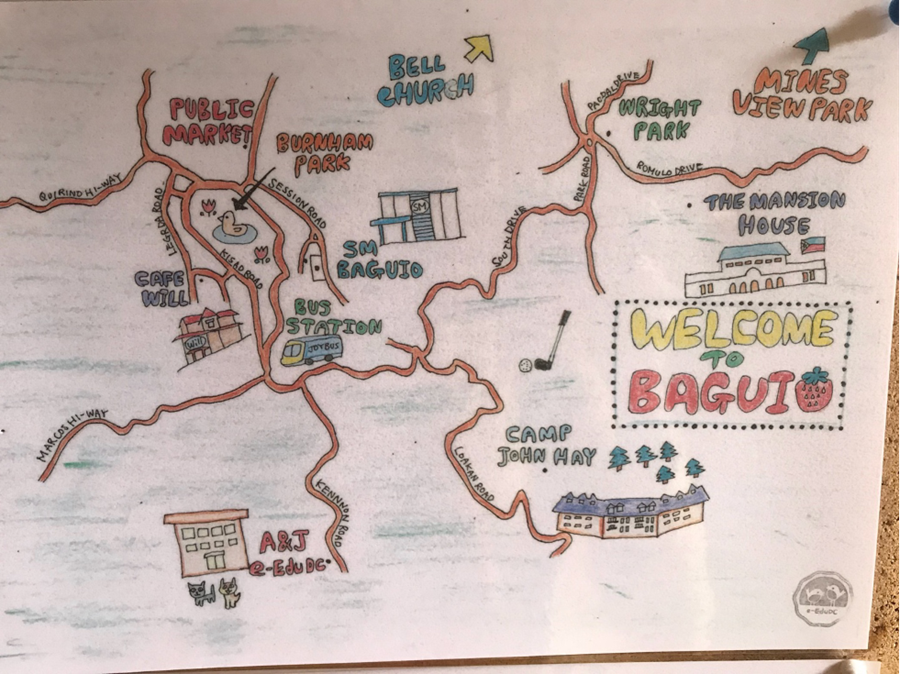 BELL
CHURCH
MINES
VIEW PARK
PUBLIC
MARKET
WRIGHT
PARK
BURNHAM
PARK
QUIRINO HI-WAY
SESSION ROAD
ROMULO DRIVE
PARK ROAD
SM
THE MANSION
HOUSE
SOUTH DRIVE
KISAD ROAD
SM
BAGUIO
CAFE
WILL
Will
BUS
STATION
JOYBUS
WELCOME
TO
BAGUIO
MARCOS HI-WAY
CAMP
JOHN HAY
LOAKAN ROAD
KENNNON ROAD
A&J
e-EduDC
e-EduDC